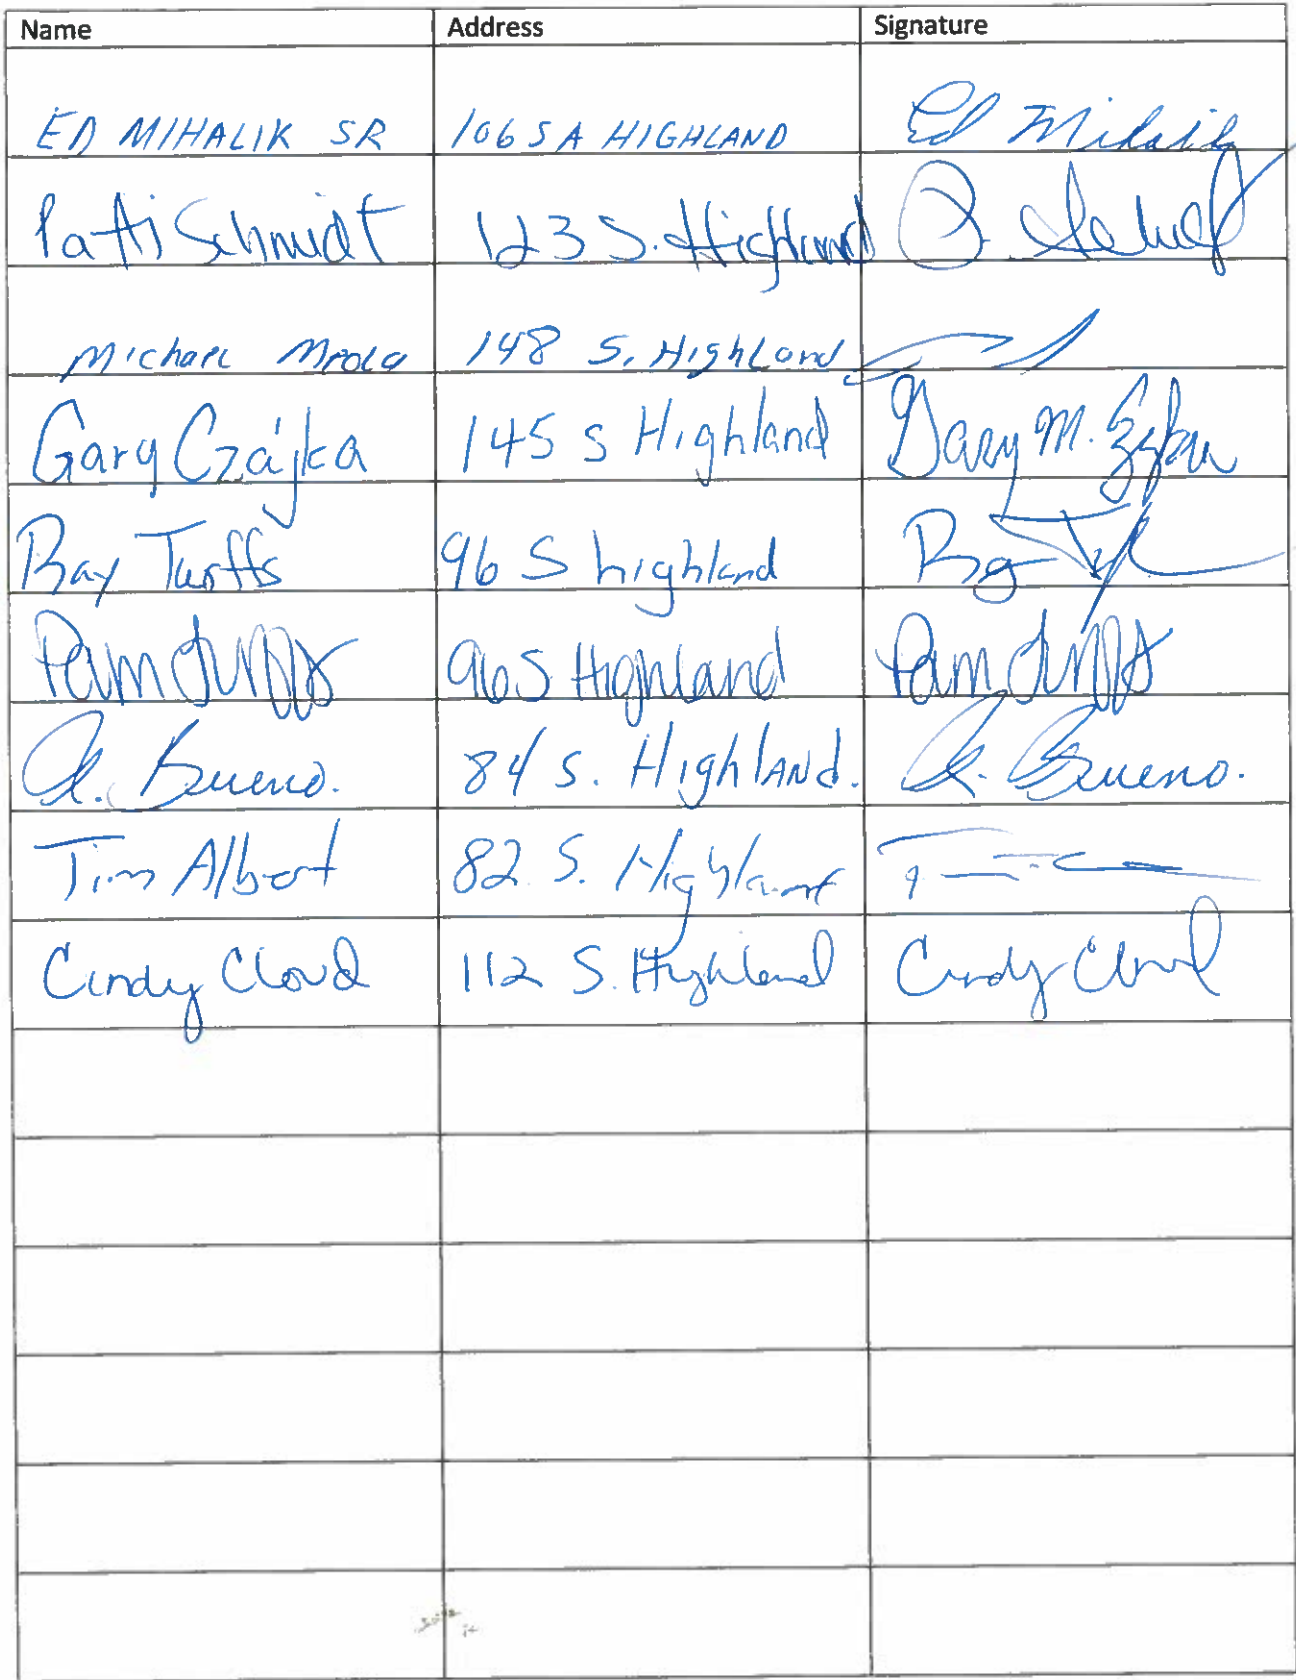 Name Address Signature
ED MIHALIK SR 106 S A HIGHLAND Ed Mihalik
Patti Schmidt 123 S. Highland P. Schmidt
Michael 148 S. Highland
Gary Czajka 145 S Highland Gary M. Czajka
Ray Turffs 96 S highland Ray
Pam Turffs 96 S Highland Pam Turffs
A. Bueno. 84 S. Highland. A. Bueno.
Tim Albert 82 S. Highland
Cindy Cloud 112 S. Highland Cindy Cloud